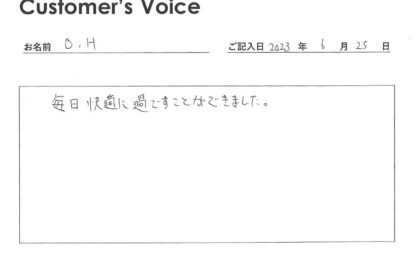 Customer's Voice
お名前 O.H ご記入日 2023 年 6 月 25 日
毎日快適に過ごすことができました。